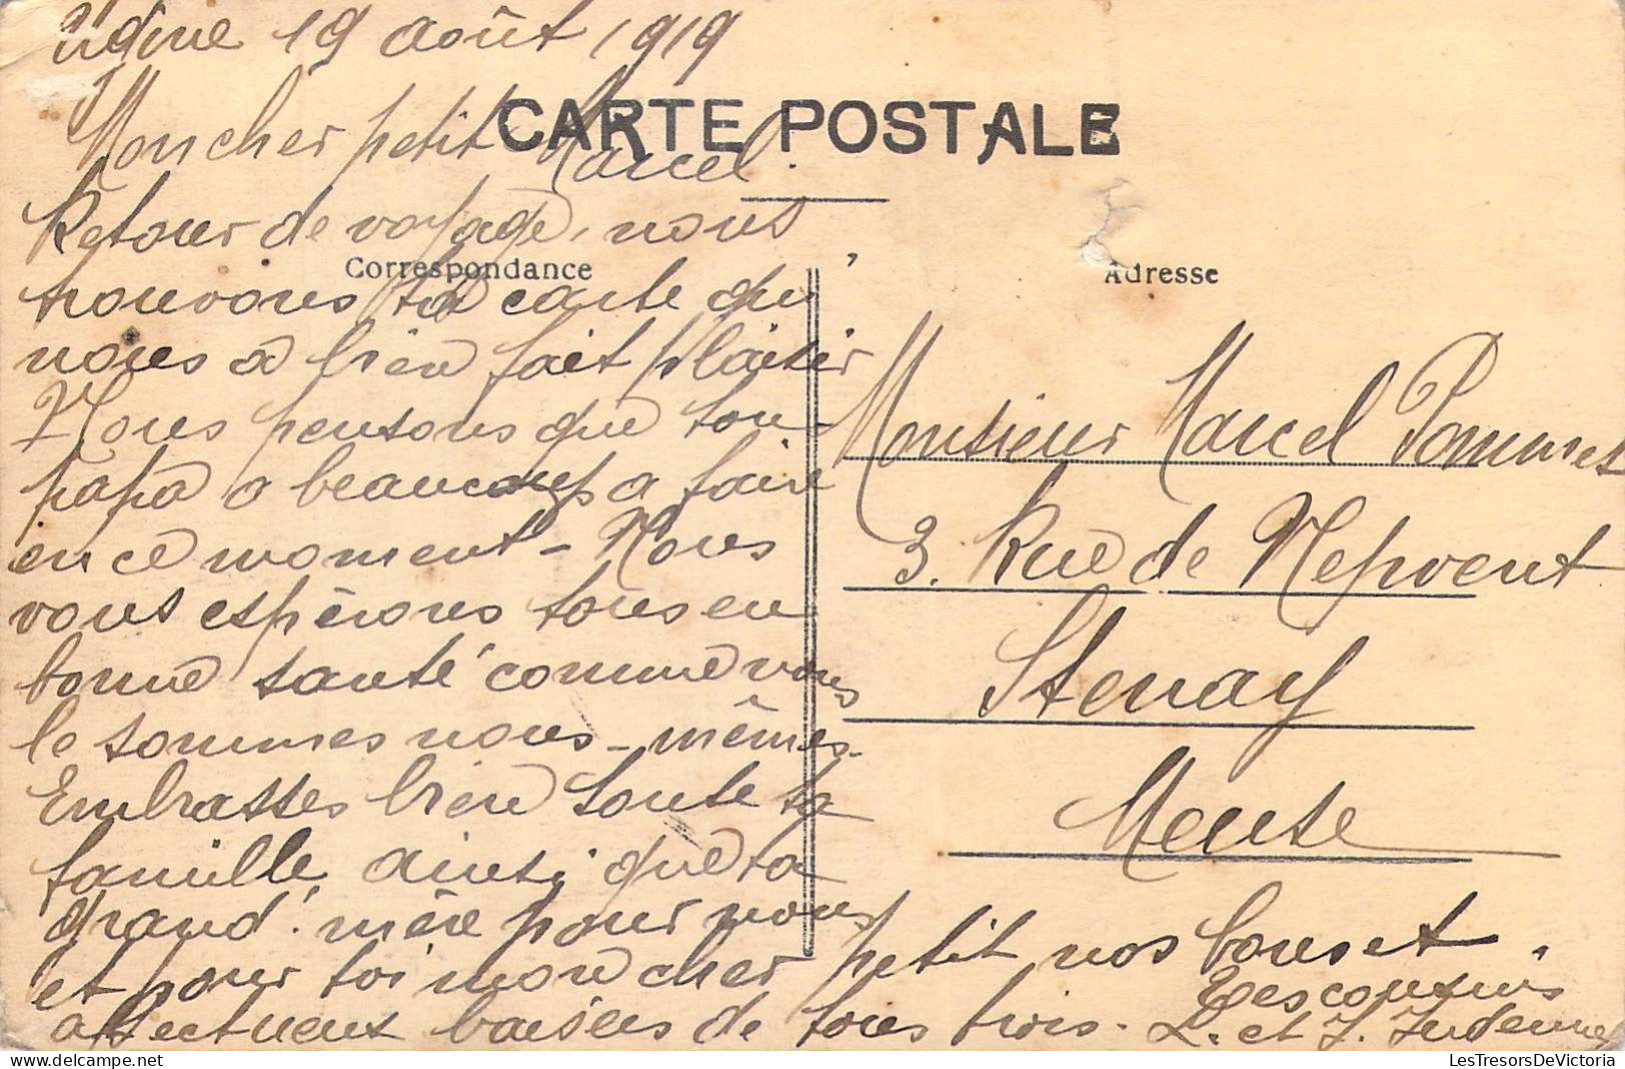 19 août 1919
CARTE POSTALE
Mon cher petit Marcel.
Retour de voyage, nous
Correspondance
trouvons ta carte qui
nous a bien fait plaisir
Nous pensons que ton
papa a beaucoup a faire
en ce moment - Nous
vous espérons tous en
bonne santé comme nous
le sommes nous-mêmes.
Embrasses bien toute ta
famille, ainsi que ta
grand'mère pour nous
et pour toi mon cher petit nos bons et
affectueux baisers de tous trois.
Tes cousins
L. et J.
Adresse
Monsieur Marcel Pommet
3. Rue de Nepvent
Stenay
Meuse
LesTresorsDeVictoria